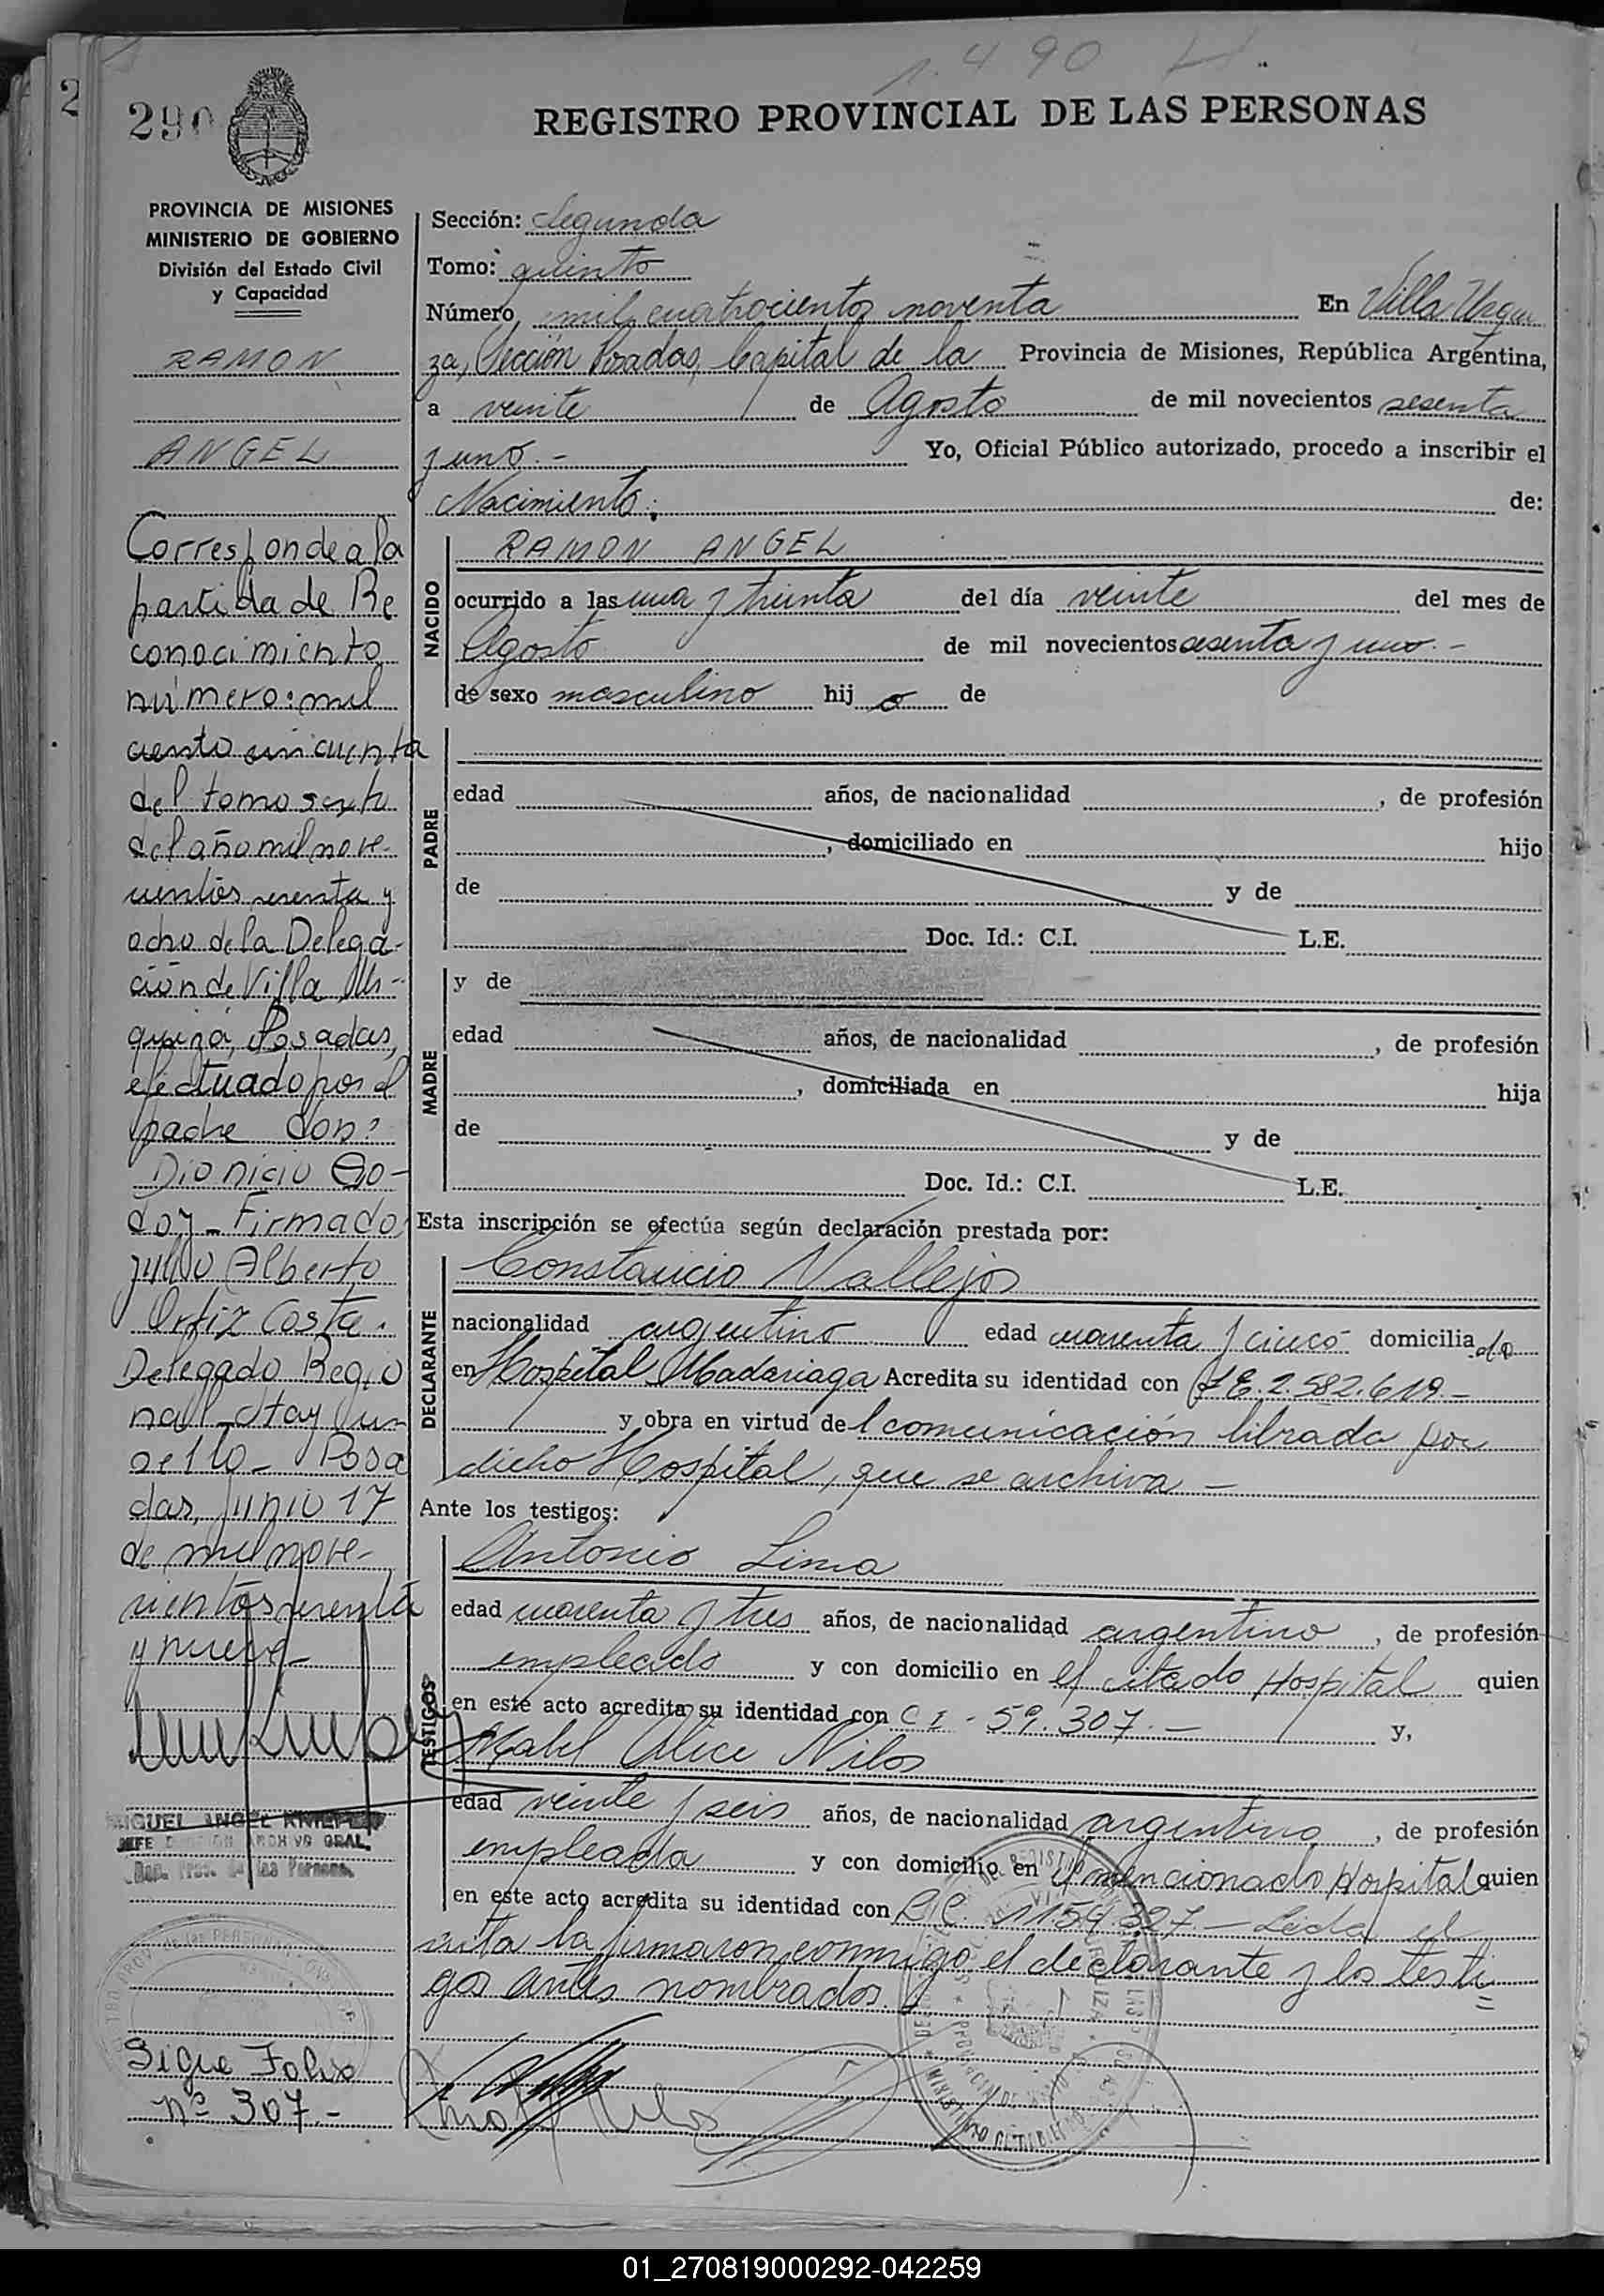 1.490
2
290
REGISTRO PROVINCIAL DE LAS PERSONAS
PROVINCIA DE MISIONES
MINISTERIO DE GOBIERNO
División del Estado Civil
y Capacidad
RAMON
ANGEL
Correspondea la
partida de Re
conocimiento
número: mil
ciento cincuenta
del tomo sexto
del año mil nove-
cientos sesenta y
ocho de la Delega-
ción de Villa Ur-
quiza, Posadas,
efectuado por el
padre don:
Dionicio Go-
doy - Firmado
Julio Alberto
Ortiz Costa.
Delegado Regio
nal - Hay un
sello - Posa
das, Junio 17
de mil nove-
cientos sesenta
y nueve-
MIGUEL ANGEL
JEFE DIVISION ARCHIVO GRAL.
Sigue Folio
Nº 307.-
Sección: Segunda
Tomo: quinto
Número mil cuatrocientos noventa En Villa Urqui
za, Sección Posadas, Capital de la Provincia de Misiones, República Argentina,
a veinte de Agosto de mil novecientos sesenta
y uno.- Yo, Oficial Público autorizado, procedo a inscribir el
Nacimiento: de:
NACIDO
RAMON ANGEL
ocurrido a las una y treinta del día veinte del mes de
Agosto de mil novecientos sesenta y uno.-
de sexo masculino hij o de
PADRE
edad años, de nacionalidad , de profesión
, domiciliado en hijo
de y de
Doc. Id.: C.I. L.E.
MADRE
y de
edad años, de nacionalidad , de profesión
, domiciliada en hija
de y de
Doc. Id.: C.I. L.E.
Esta inscripción se efectúa según declaración prestada por:
DECLARANTE
Constancio Vallejos
nacionalidad argentino edad cuarenta y cinco domicilia do
en Hospital Madariaga Acredita su identidad con L E. 2.582.619.-
y obra en virtud de l comunicación librada por
dicho Hospital, que se archiva -
Ante los testigos:
TESTIGOS
Antonio Lima
edad cuarenta y tres años, de nacionalidad argentino , de profesión
empleado y con domicilio en el citado Hospital quien
en este acto acredita su identidad con C I - 59.307.- y,
Mabel Alice Nilos
edad veinte y seis años, de nacionalidad argentina , de profesión
empleada y con domicilio en el mencionado Hospital quien
en este acto acredita su identidad con 1154.327.- Leida el
acta la firmaron conmigo el declarante y los testi
gos antes nombrados.
01_270819000292-042259